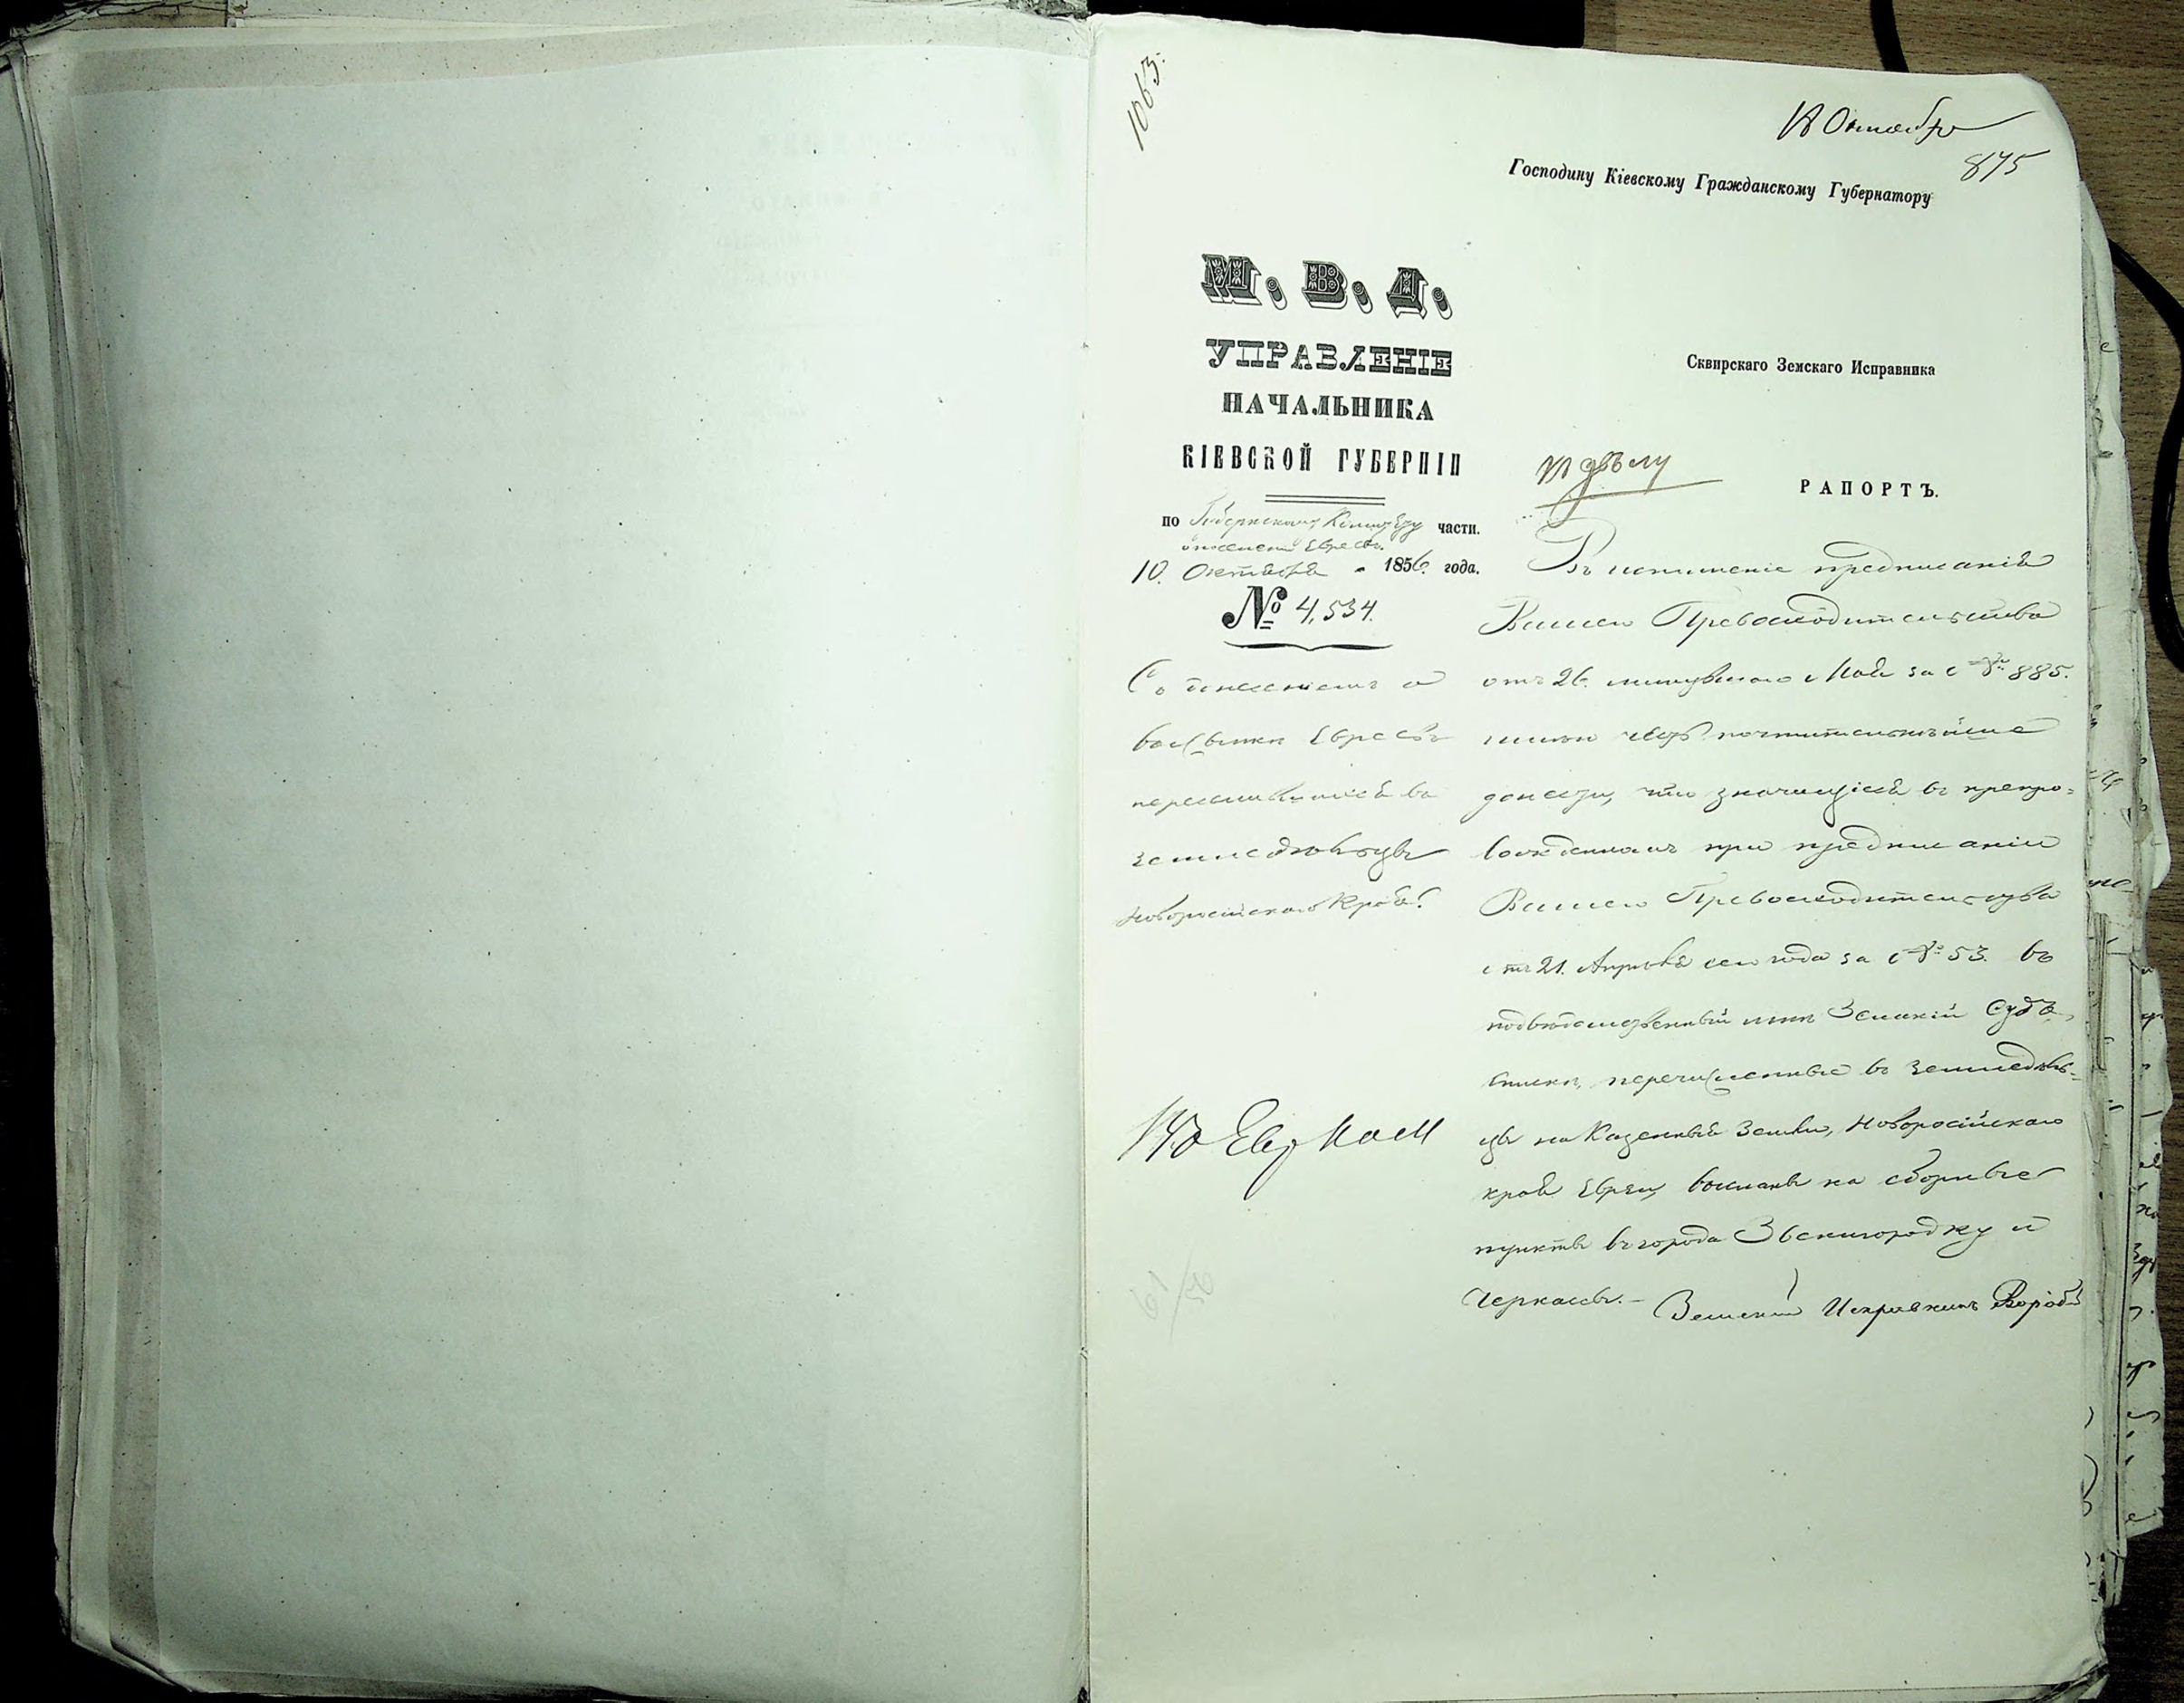 1063.
18 Октября
875
Господину Кіевскому Гражданскому Губернатору
М. В. Д.
УПРАВЛЕНІЕ
НАЧАЛЬНИКА
КІЕВСКОЙ ГУБЕРНІИ
по Губернскому Комитету части.
Евреевъ.
10. Октября 1856. года.
№ 4,534.
Съ донесеніемъ о
высылки Евреевъ
переселившихся въ
земледѣльцы
Новоросійскаго Края.
Сквирскаго Земскаго Исправника
Къ дѣлу
РАПОРТЪ.
Въ исполненіе предписанія
Вашего Превосходительства
отъ 26. минувшаго Мая за № 885.
имѣю честь почтительнѣйше
донести, что значущіеся въ препро=
вожденномъ при предписаніи
Вашего Превосходительства
отъ 21. Апрѣля сего года за № 53. въ
подвѣдомственный мнѣ Земскій Судъ,
списки, перечисленные въ земледѣль=
цы на Казенныя Земли, Новоросійскаго
края Евреи, высланы на сборные
пункты въ города Звенигородку и
Черкассы.— Земскій Исправникъ
61/56